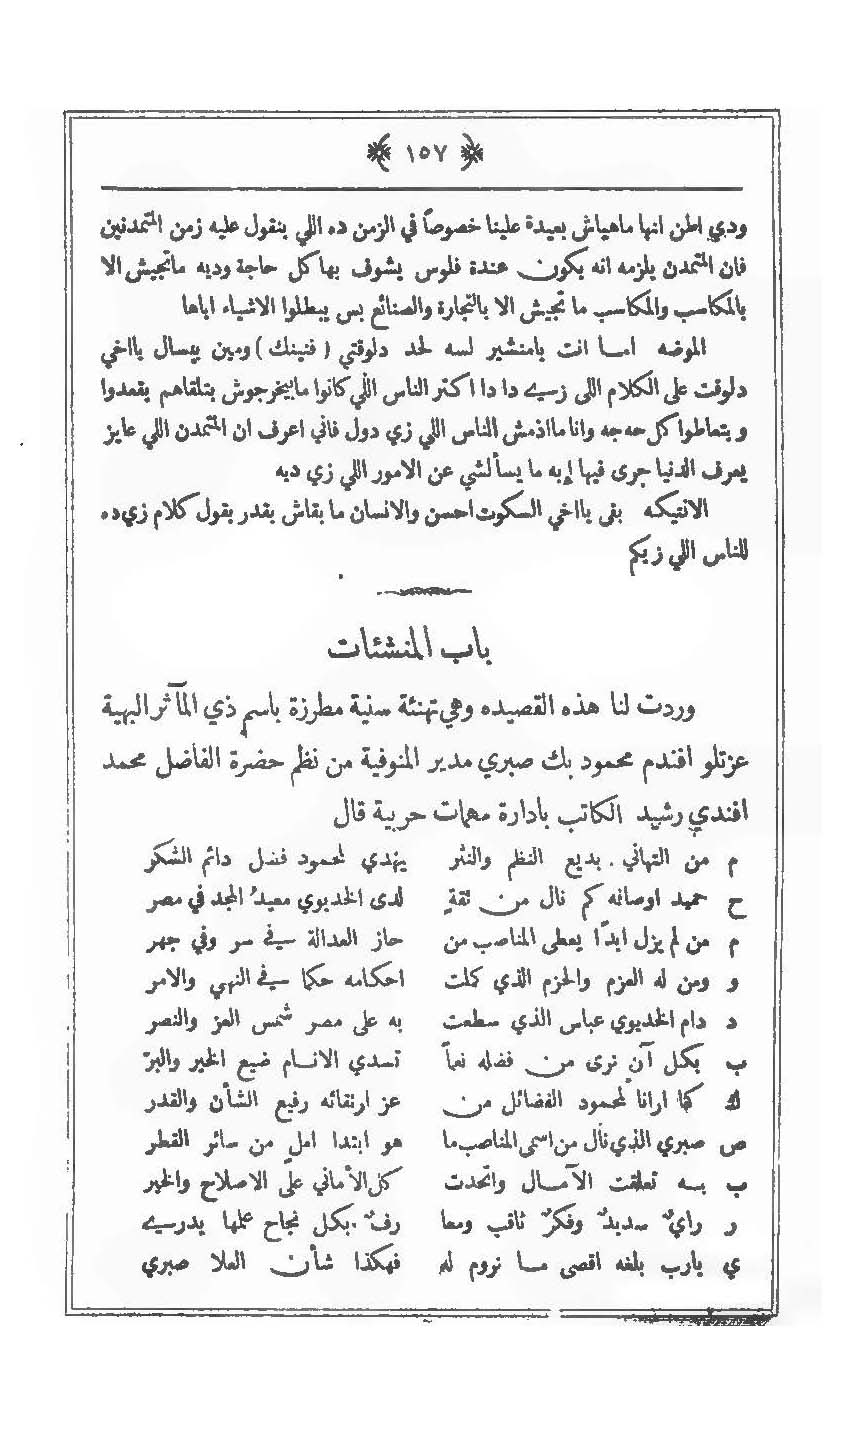 ١٥٧
ودي اظن انها ماهياش بعيدة علينا خصوصاً في الزمن ده اللي بنقول عليه زمن المتمدنين
فان المتمدن يلزمه انه يكون عندة فلوس يشوف بها كل حاجة وديه ماتجيش الا
بالمكاسب والمكاسب ما تجيش الا بالتجارة والصنائع بس يبطلوا الاشياء اياها
الموضه امـا انت يامنشير لسه لحد دلوقتي ( فنينك ) ومين يسال يااخي
دلوقت على الكلام اللى زي دا دا اكتر الناس اللي كانوا مابيخرجوش بتلقاهم يقعدوا
ويتعاطوا كل حه جه وانا مااذمش الناس اللي زي دول فاني اعرف ان المتمدن اللي عايز
يعرف الدنيا جرى فيها إيه ما يسألشي عن الامور اللي زي ديه
الانتيكه بقى يااخي السكوت احسن والانسان ما بقاش يقدر يقول كلام زي ده
للناس اللي زيكم
باب المنشئات
وردت لنا هذه القصيده وهي تهنئة سنية مطرزة باسم ذي المآثر البهية
عزتلو افندم محمود بك صبري مدير المنوفية من نظم حضرة الفاضل محمد
افندي رشيد الكاتب بادارة مهمات حربية قال
م من التهاني بديع النظم والنثر يهدي لمحمود فضل دائم الشكر
ح حميد اوصافه كم نال من ثقةٍ لدى الخديوي معيدُ المجد في مصر
م من لم يزل ابدًا يعطى المناصب من حاز العدالة في سر وفي جهر
و ومن له العزم والحزم الذي كملت احكامه حكما في النهي والامر
د دام الخديوي عباس الذي سطعت به على مصر شمس العز والنصر
ب بكل آن نرى من فضله نعماً تسدي الانـام ضيع الخير والبرّ
ك كما ارانا لمحمود الفضائل من عز ارتقائه رفيع الشأن والقدر
ص صبري الذي نال من اسمى المناصب ما هو ابتدا املٍ من سائر القطر
ب بـه تعلقت الآمـال واتحدت كل الأماني على الاصلاح والخير
ر رايٌ سديدٌ وفكرٌ ثاقب ومعا رفٌ بكل نجاح علمها يدري
ي يارب بلغه اقصى مـا نروم له فهكذا شأن العلا صبري